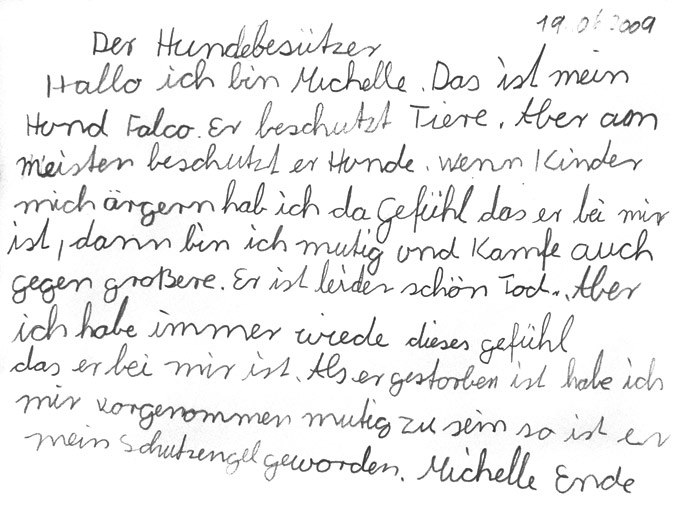 19.06.2009
Der Hundebesützer
Hallo ich bin Michelle. Das ist mein
Hund Falco. Er beschutzt Tiere. Aber am
meisten beschutzt er Hunde. wenn Kinder
mich ärgern hab ich da Gefühl das er bei mir
ist, dann bin ich mutig und Kamfe auch
gegen großere. Er ist leider schön Tod... Aber
ich habe immer wiede dieses gefühl
das er bei mir ist. Als er gestorben ist habe ich
mir vorgenommen mutig zu sein so ist er
mein Schutzengel geworden. Michelle Ende